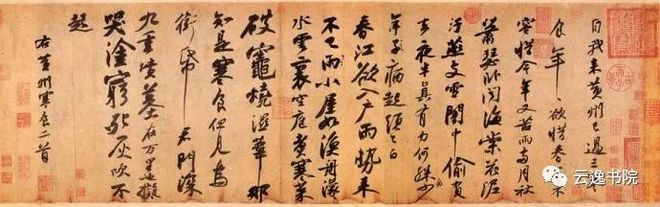 自我來黃州已過三寒
食年〻欲惜春春去不
容惜今年又苦雨兩月秋
蕭瑟卧聞海棠花泥
汙燕支雪闇中偷負
去夜半真有力何殊少
年子病起頭已白
春江欲入户雨勢來
不已雨小屋如漁舟濛〻
水雲裏空庖煮寒菜
破竈燒濕葦那
知是寒食但見烏
銜帋君門深
九重墳墓在万里也擬
哭塗窮死灰吹不
起
右黃州寒食二首
云逸书院